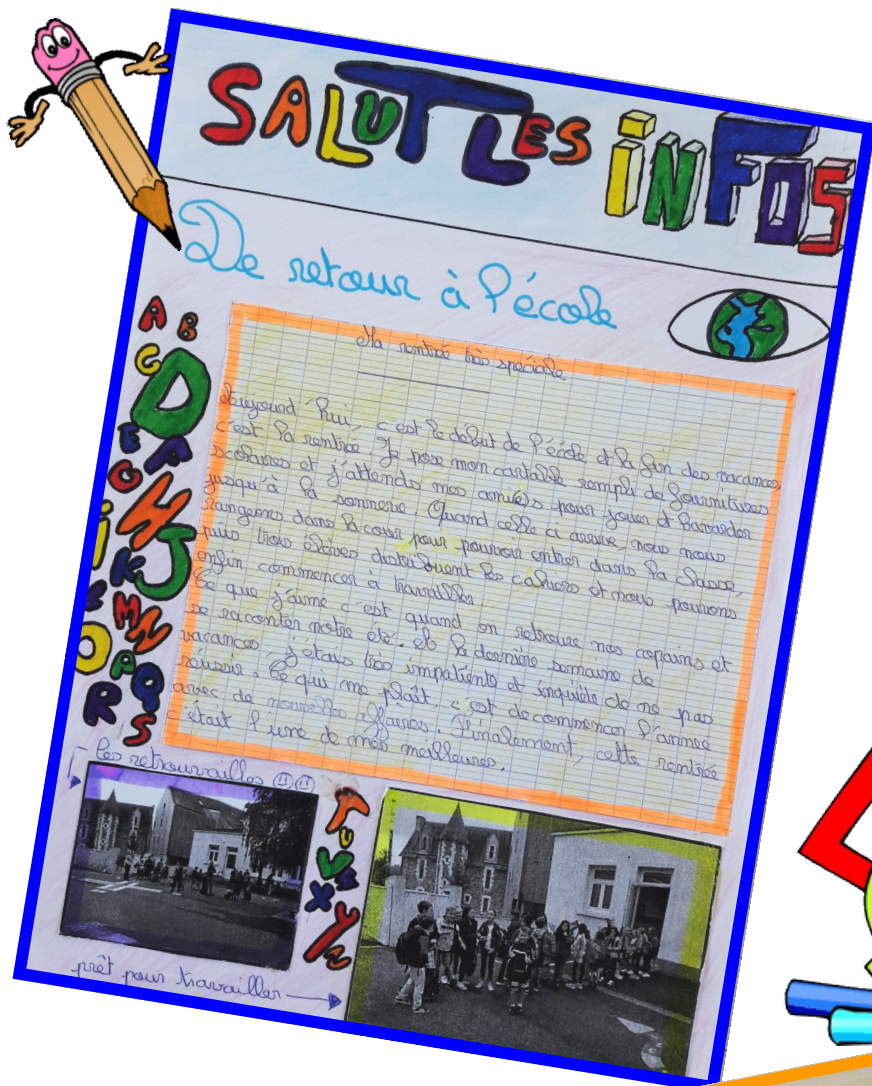 SALUT LES iNFOS
De retour à l'école
Ma rentrée très spéciale
Aujourd'hui, c'est le début de l'école et la fin des vacances,
c'est la rentrée. Je pose mon cartable rempli de fournitures
scolaires et j'attends mes ami(e)s pour jouer et bavarder
jusqu'à la sonnerie. Quand celle ci arrive, nous nous
rangeons dans la cour pour pouvoir entrer dans la classe,
puis trois élèves distribuent les cahiers et nous pouvons
enfin commencer à travailler.
Ce que j'aime c'est quand on retrouve nos copains et
se raconter notre été. et la dernière semaine de
vacances, j'étais très impatiente et inquiète de ne pas
réussir. Ce qui me plaît, c'est de commencer l'année
avec de nouvelles affaires. Finalement, cette rentrée
c'était l'une de mes meilleures.
A B
C D
E
G H
i J
K
L M N
O
R Q S
les retrouvailles
T U V
X Y Z
prêt pour travailler